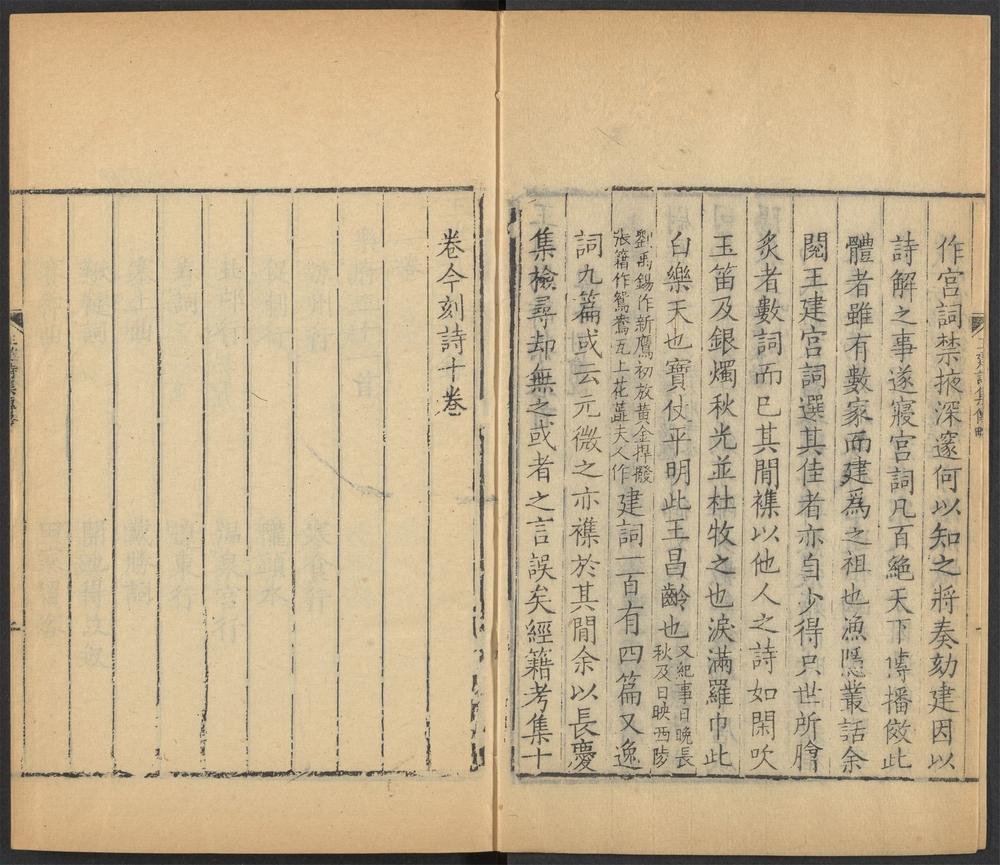 作宮詞禁掖深邃何以知之將奏劾建因以
詩解之事遂寢宮詞凡百絶天下傳播倣此
體者雖有數家而建爲之祖也漁隱叢話余
閱王建宮詞選其佳者亦自少得只世所膾
炙者數詞而已其閒襍以他人之詩如閑吹
玉笛及銀燭秋光並杜牧之也淚滿羅巾此
白樂天也寶仗平明此王昌齡也又紀事日晚長
秋及日映西陵
劉禹錫作新鷹初放黃金捍撥
張籍作鴛鴦瓦上花蕋夫人作建詞一百有四篇又逸
詞九篇或云元微之亦襍於其閒余以長慶
集檢尋却無之或者之言誤矣經籍考集十
卷今刻詩十卷